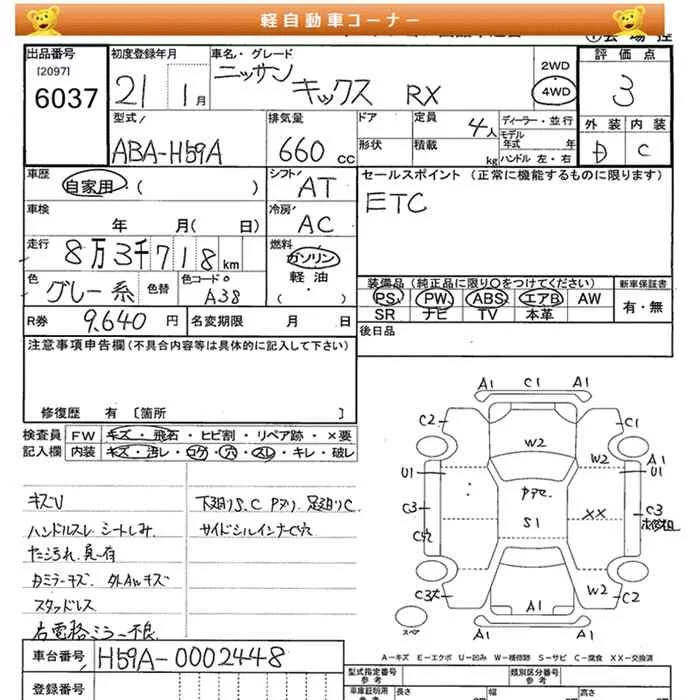 軽自動車コーナー
出品番号
[2097]
6037
初度登録年月
21 1月
車名・グレード
ニッサン キックス RX
2WD
4WD
評価点
3
外装 内装
D C
型式
ABA-H59A
排気量
660 cc
ドア
形状
定員
4人
積載
kg
ディーラー・並行
モデル
年式 年
ハンドル 左・右
車歴
自家用 ( )
シフト
AT
セールスポイント (正常に機能するものに限ります)
ETC
車検
年 月( 日)
冷房
AC
走行
8万3千718km
燃料
ガソリン
軽油
( )
色
グレー系
色替
色コード
A38
装備品 (純正品に限り○をつけてください)
PS PW ABS エアB AW
SR ナビ TV 本革
新車保証書
有・無
R券
9,640 円
名変期限 月 日
後日品
注意事項申告欄(不具合内容等は具体的に記入して下さい)
修復歴 有 [箇所 ]
検査員 FW キズ・飛石・ヒビ割・リペア跡・×要
記入欄 内装 キズ・汚レ・コゲ・穴・スレ・キレ・破レ
キズU
ハンドルスレ シートしみ
スタッドレス
右電格ミラー不良
下廻りS、C
サイドシルインナーC穴
A1 C1 A1
C2 C1
W2 W2
U1 A1
U1
C3 C3
S1 XX
W2
C2
A1
A1 A1
スペア
A-キズ E-エクボ U-凹み W-補修跡 S-サビ C-腐食 XX-交換済
車台番号 H59A-0002448
登録番号
型式指定番号
参考
類別区分番号
参考
車庫証明用
参考
長さ 幅 高さ